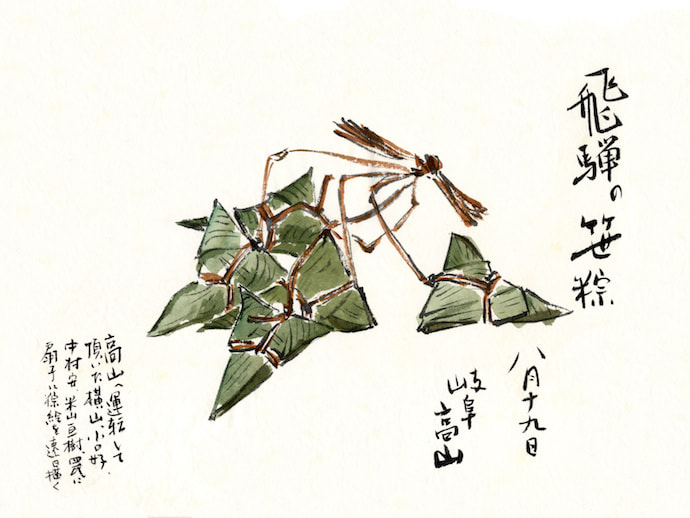 飛騨の笹粽
八月十九日
岐阜高山
高山へ運転して
頂いた横山、小口好、
中村安、米山直樹、四氏に
扇子に粽絵を